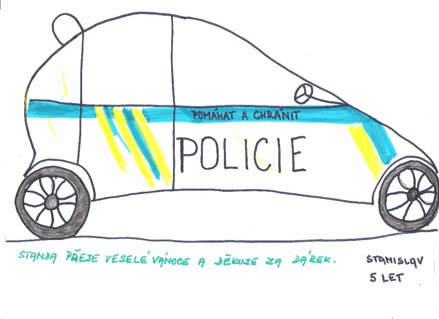 POMÁHAT A CHRÁNIT
POLICIE
STANDA PŘEJE VESELÉ VÁNOCE A DĚKUJE ZA DÁREK.
STANISLAV
5 LET